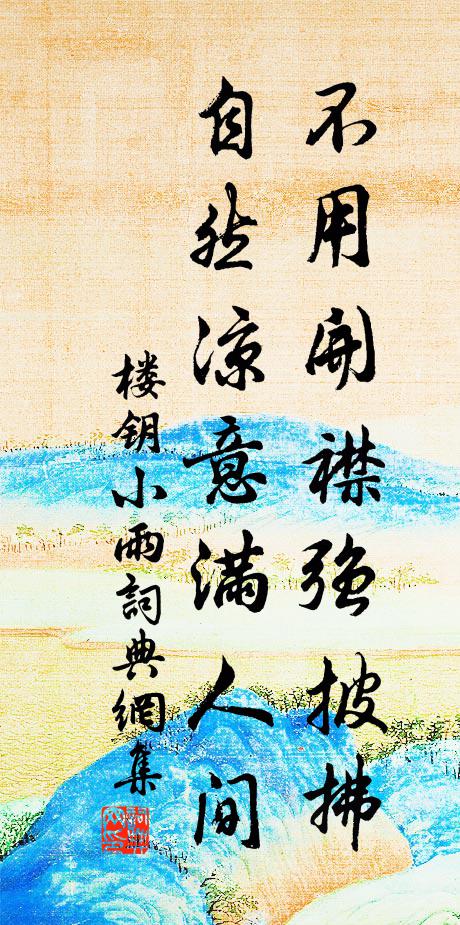 不用开襟强披拂
自然凉意满人间
楼钥小雨詞典網集